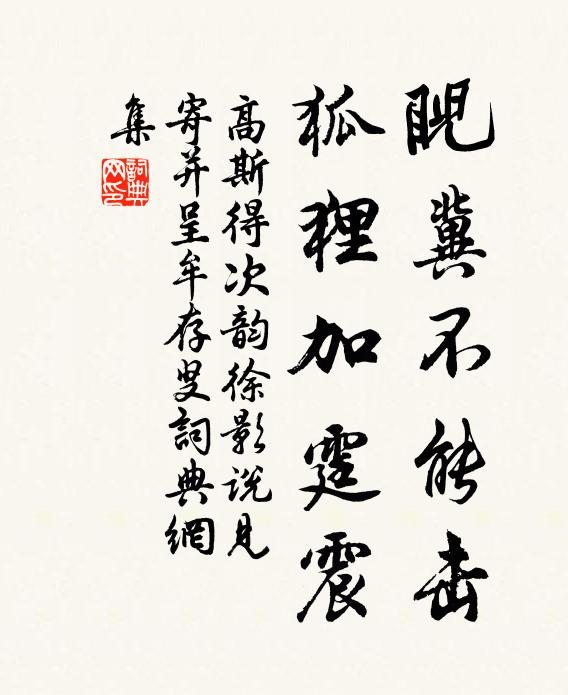 睨冀不能击
狐狸加霆震
高斯得次韵徐影说见
寄并呈牟存叟詞典網
集
詞典网印